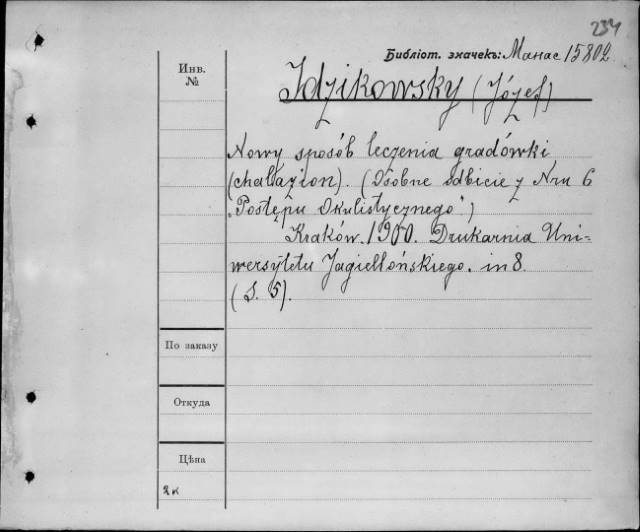 234
Библіот. значекъ: Манас 15802
Инв.
№
Idzikowsky (Józef)
Nowy sposób leczenia gradówki
(chalazion). (Osobne odbicie z Nru 6
„Postępu Okulistycznego")
Kraków. 1900. Drukarnia Uni-
wersytetu Jagiellońskiego. in 8.
(S. 5).
По заказу
Откуда
Цѣна
2к